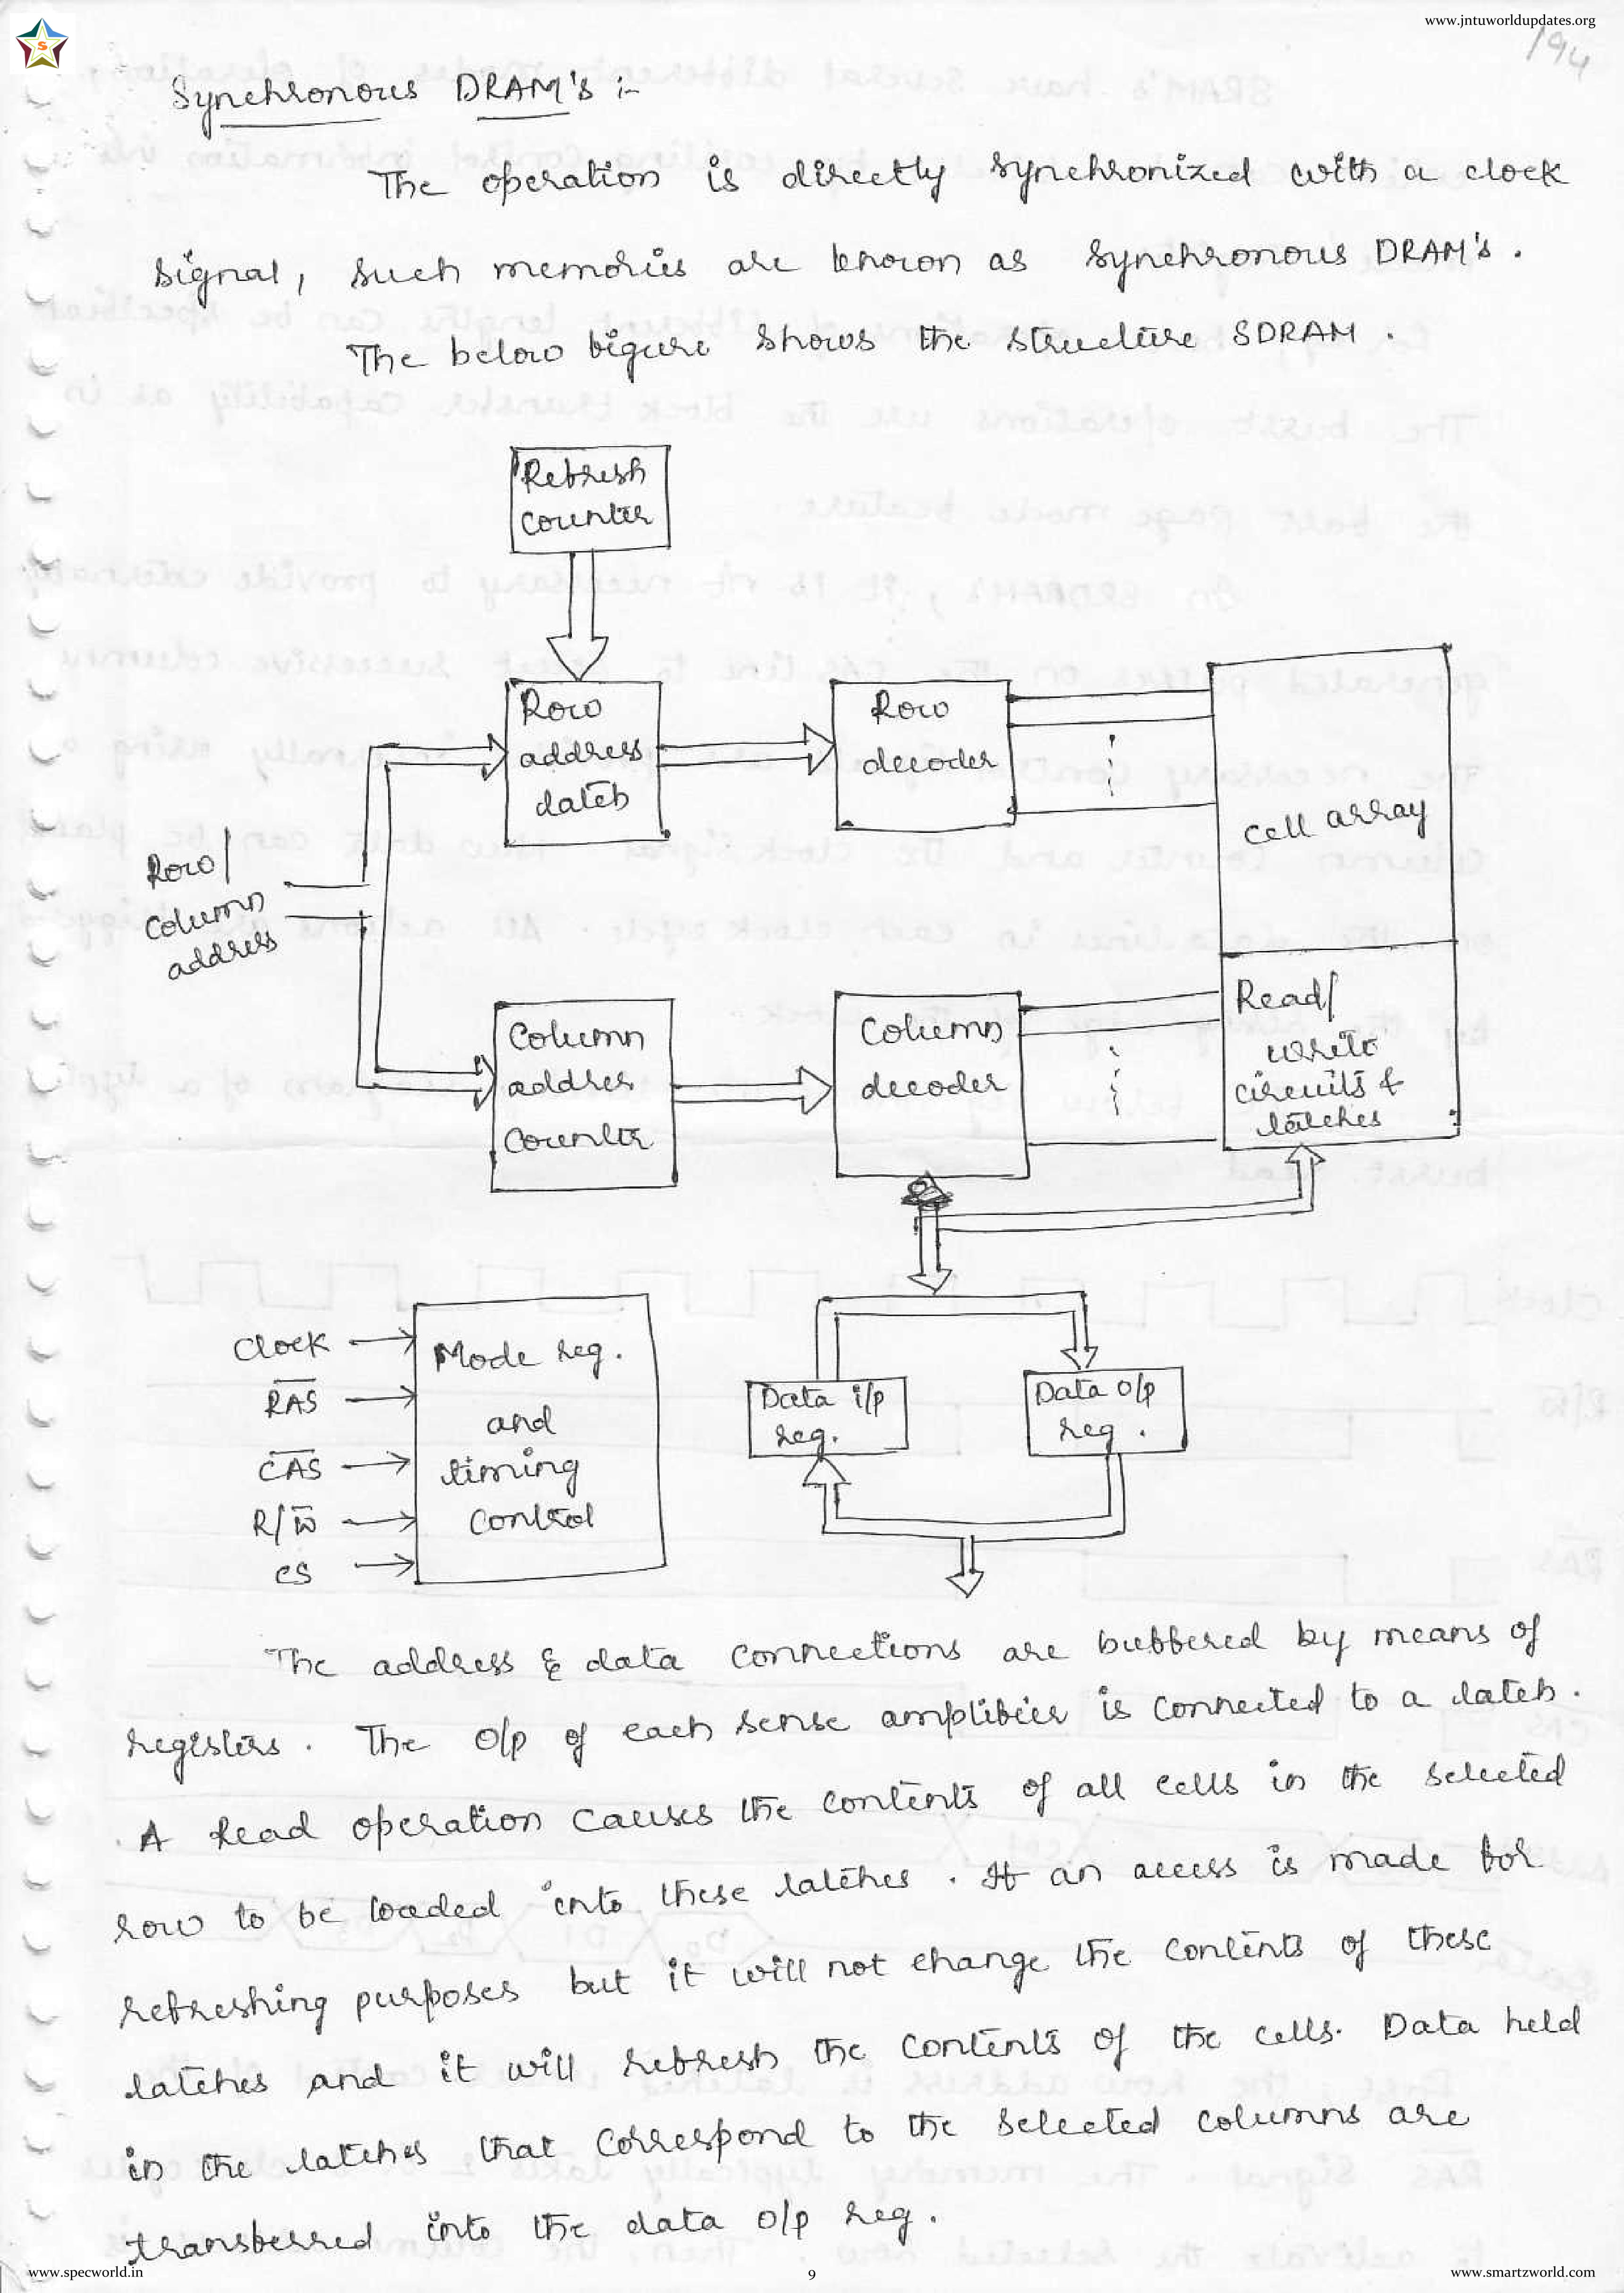 www.jntuworldupdates.org
194
S
Synchronous DRAM's :-
The operation is directly synchronized with a clock
signal, such memories are known as synchronous DRAM's.
The below figure shows the structure SDRAM.
Refresh
counter
Row
address
latch
Row
decoder
cell array
Row/
column
address
Column
address
counter
Column
decoder
Read/
write
circuits &
latches
Clock
RAS
CAS
R/W
CS
Mode reg.
and
timing
control
Data i/p
reg.
Data o/p
reg.
The address & data connections are buffered by means of
registers. The o/p of each sense amplifier is connected to a latch.
A read operation causes the contents of all cells in the selected
row to be loaded into these latches. If an access is made for
refreshing purposes but it will not change the contents of these
latches and it will refresh the contents of the cells. Data held
in the latches that correspond to the selected columns are
transferred into the data o/p reg.
www.specworld.in
9
www.smartzworld.com